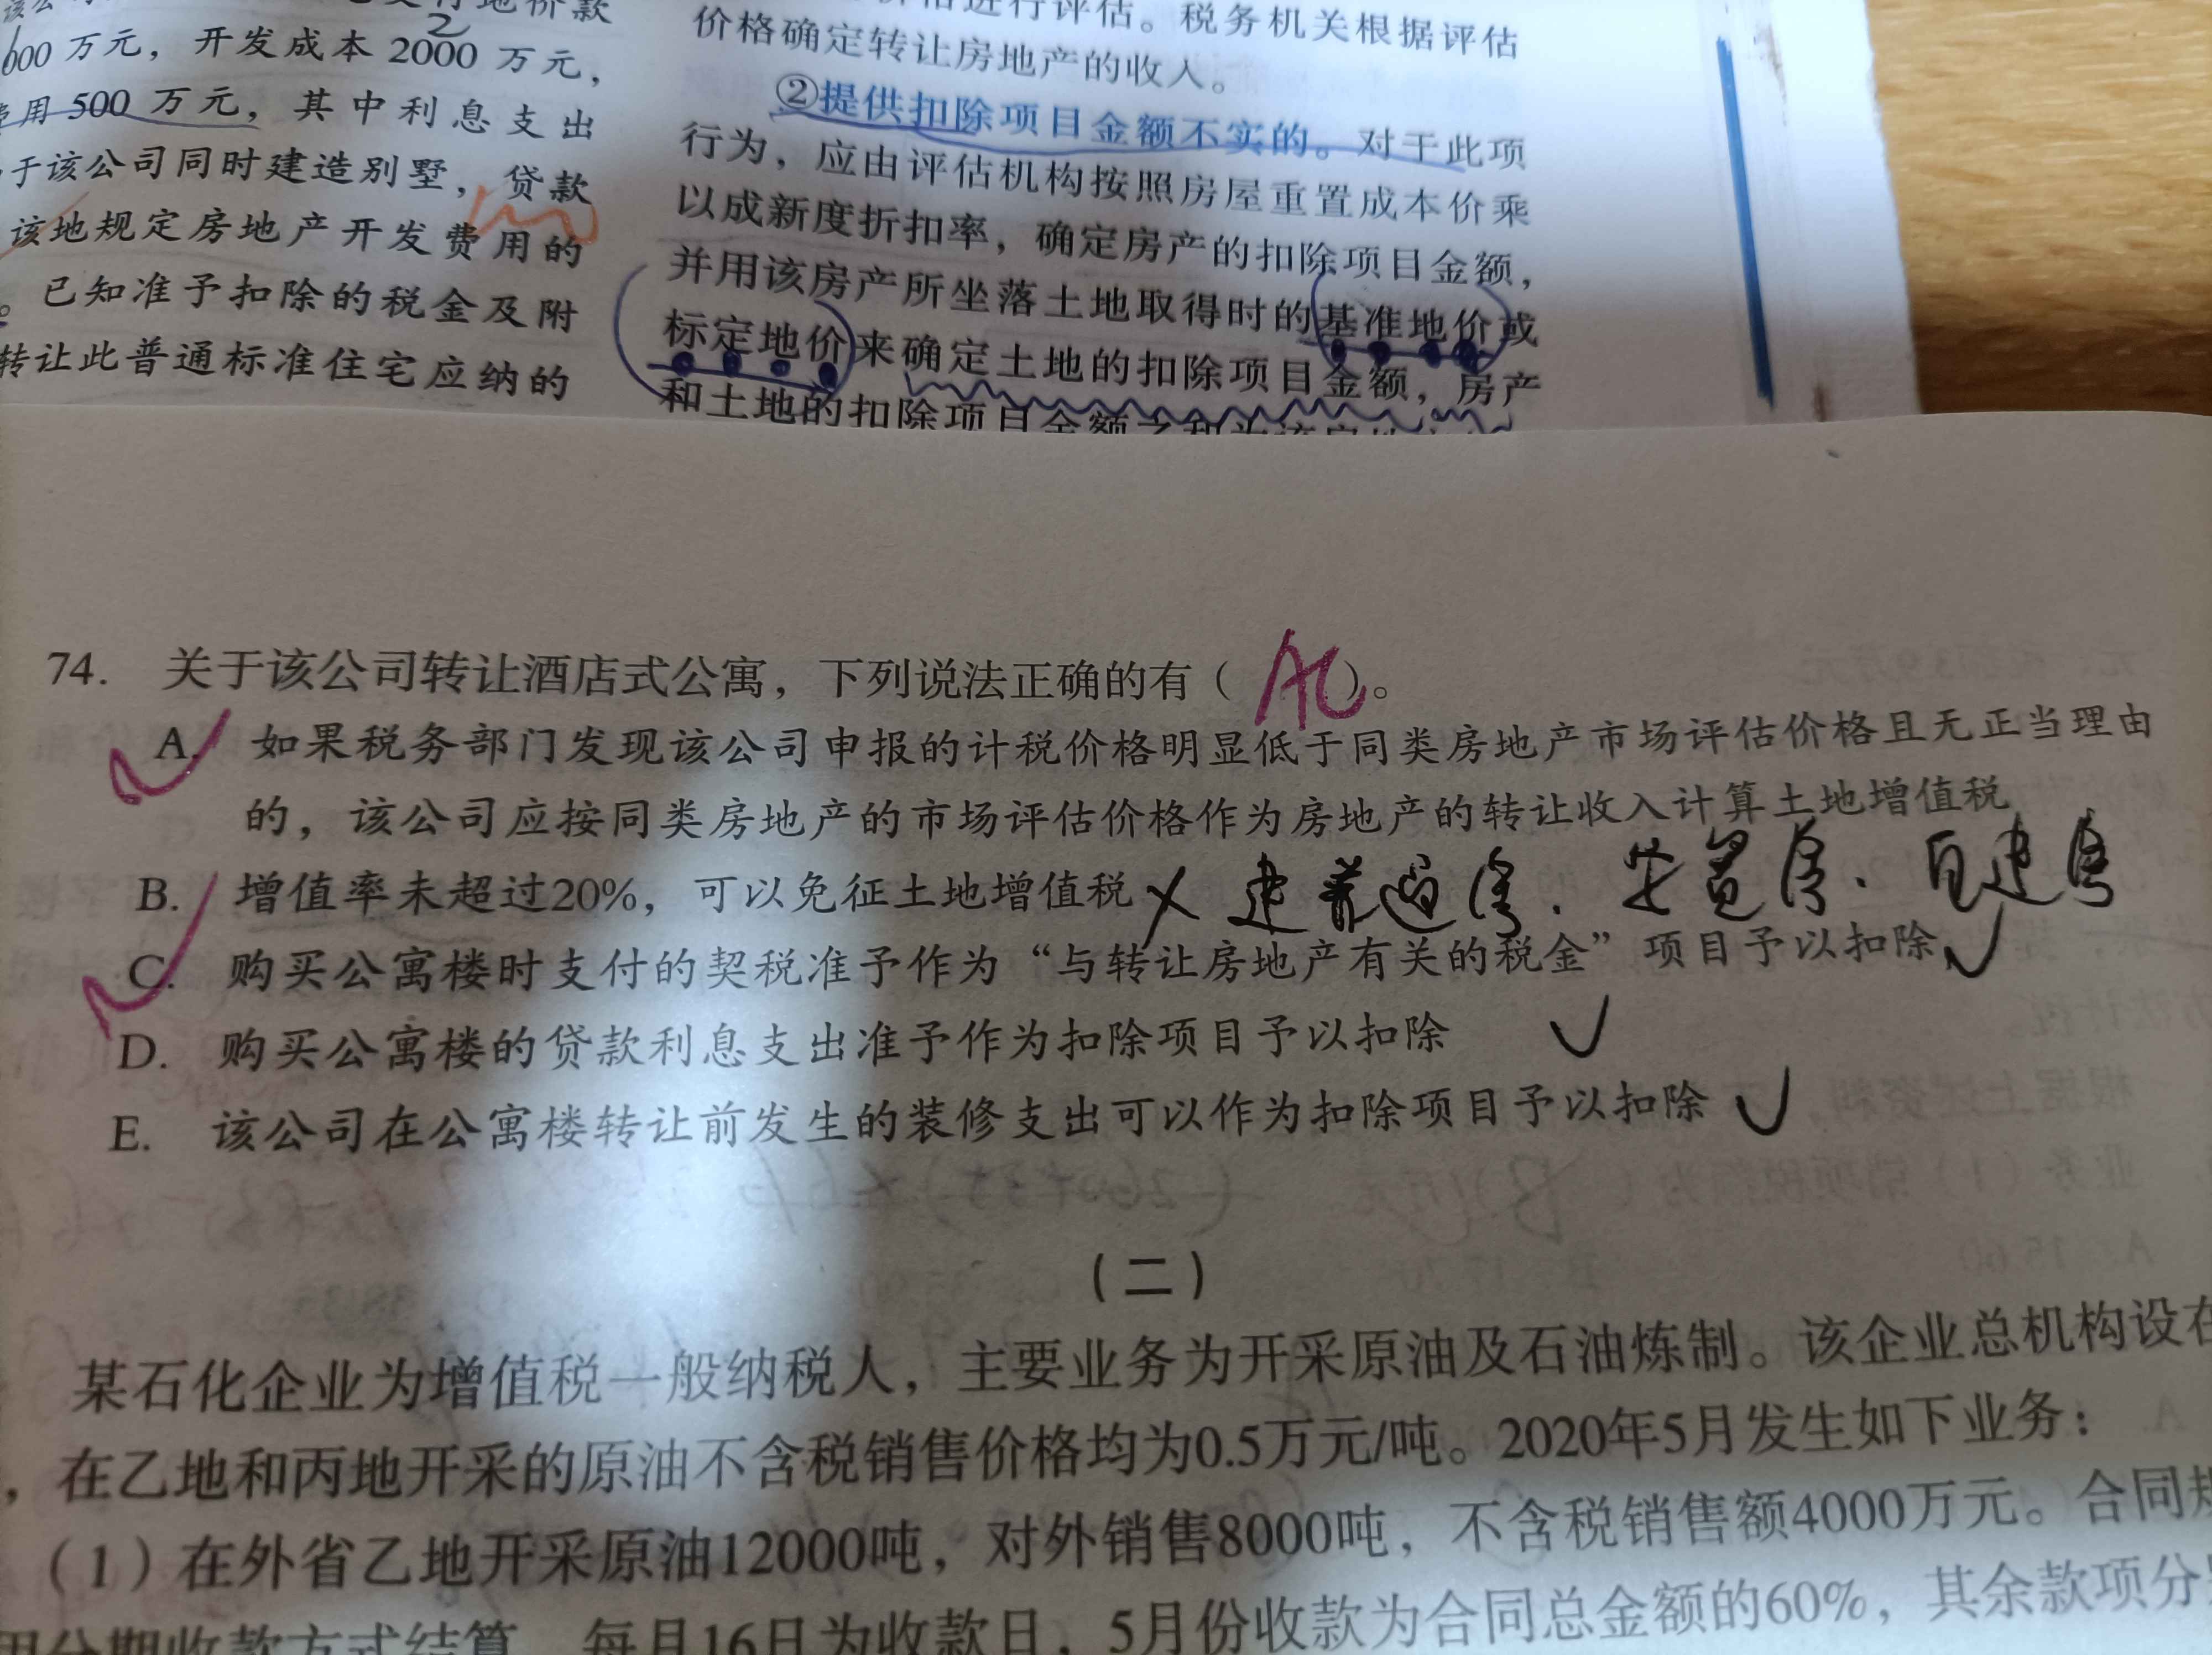 地价款
2
600万元，开发成本2000万元，
用500万元，其中利息支出
于该公司同时建造别墅，贷款
该地规定房地产开发费用的
。已知准予扣除的税金及附
转让此普通标准住宅应纳的
进行评估。税务机关根据评估
价格确定转让房地产的收入。
②提供扣除项目金额不实的。对于此项
行为，应由评估机构按照房屋重置成本价乘
以成新度折扣率，确定房产的扣除项目金额，
并用该房产所坐落土地取得时的基准地价或
标定地价来确定土地的扣除项目金额，房产
和土地的扣除项目金额之和为该房
74. 关于该公司转让酒店式公寓，下列说法正确的有（AC）。
A. 如果税务部门发现该公司申报的计税价格明显低于同类房地产市场评估价格且无正当理由
的，该公司应按同类房地产的市场评估价格作为房地产的转让收入计算土地增值税
B. 增值率未超过20%，可以免征土地增值税 × 建普通房、安置房、自建房
C. 购买公寓楼时支付的契税准予作为“与转让房地产有关的税金”项目予以扣除
D. 购买公寓楼的贷款利息支出准予作为扣除项目予以扣除
E. 该公司在公寓楼转让前发生的装修支出可以作为扣除项目予以扣除
（二）
某石化企业为增值税一般纳税人，主要业务为开采原油及石油炼制。该企业总机构设在
，在乙地和丙地开采的原油不含税销售价格均为0.5万元/吨。2020年5月发生如下业务：
（1）在外省乙地开采原油12000吨，对外销售8000吨，不含税销售额4000万元。合同规
用分期收款方式结算，每月16日为收款日，5月份收款为合同总金额的60%，其余款项分